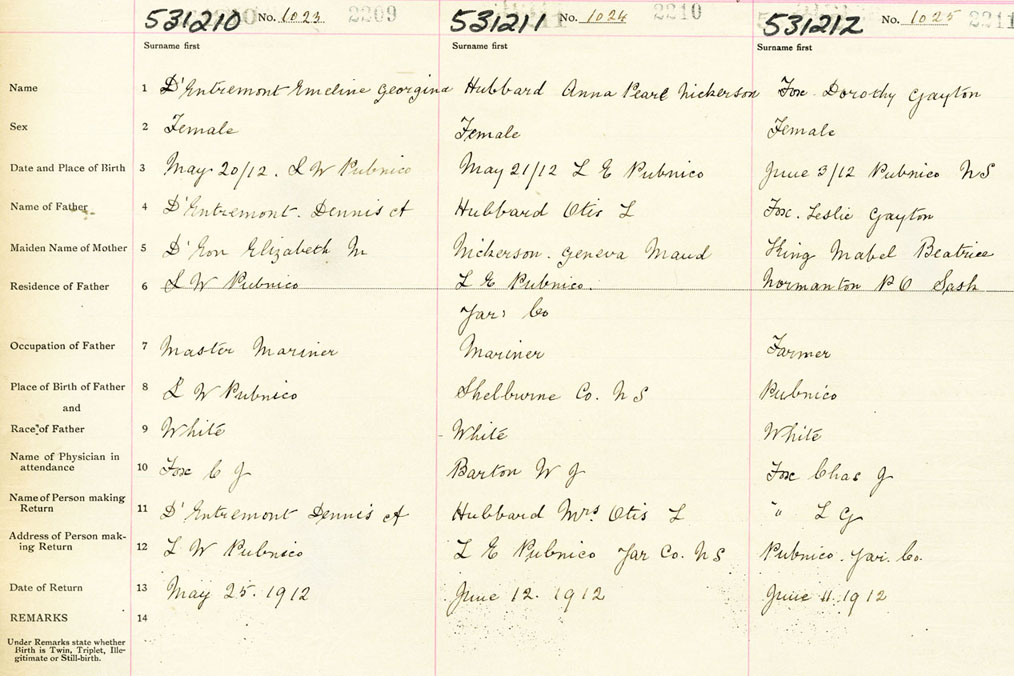 531210 No. 1023 2209 531211 No. 1024 2210 531212 No. 1025 2211
Surname first Surname first Surname first
Name 1 D'Entremont Emeline Georgina Hubbard Anna Pearl Nickerson Fox Dorothy Gayton
Sex 2 Female Female Female
Date and Place of Birth 3 May 20/12. L W Pubnico May 21/12 L E Pubnico June 3/12 Pubnico NS
Name of Father 4 D'Entremont. Dennis A Hubbard Otis L Fox. Leslie Gayton
Maiden Name of Mother 5 D'Eon Elizabeth M Nickerson. Geneva Maud King Mabel Beatrice
Residence of Father 6 L W Pubnico L E Pubnico. Normanton P O Sask
Yar: Co
Occupation of Father 7 Master Mariner Mariner Farmer
Place of Birth of Father 8 L W Pubnico Shelburne Co. N S Pubnico
and
Race of Father 9 White White White
Name of Physician in
attendance 10 Fox C J Barton W J Fox Chas J
Name of Person making
Return 11 D'Entremont Dennis A Hubbard Mrs Otis L " L G
Address of Person mak-
ing Return 12 L W Pubnico L E Pubnico Yar Co. NS Pubnico. Yar. Co.
Date of Return 13 May 25. 1912 June 12. 1912 June 11. 1912
REMARKS 14
Under Remarks state whether
Birth is Twin, Triplet, Ille-
gitimate or Still-birth.